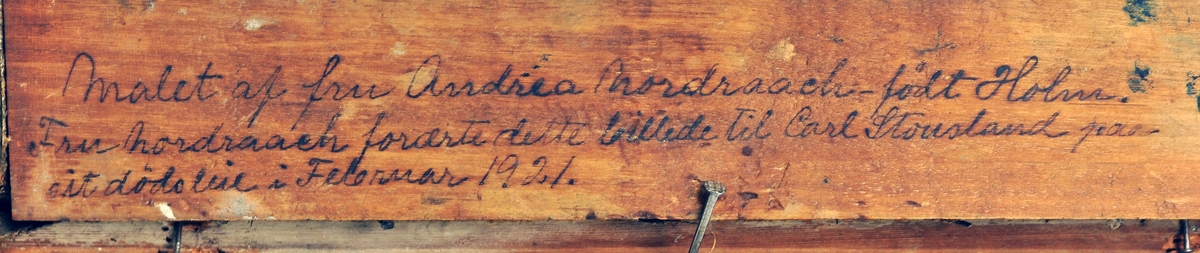 Malet af fru Andrea Nordraach - födt Holm.
Fru Nordraach forærte dette billede til Carl Stousland paa
sit dödsleie i Februar 1921.